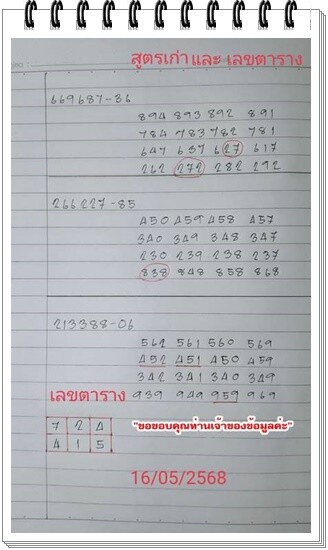 สูตรเก่า และ เลขตาราง
669687-36
894 893 892 891
784 783 782 781
647 637 627 617
262 272 282 292
266227-85
450 459 458 457
340 349 348 347
230 239 238 237
838 848 858 868
213388-06
562 561 560 569
452 451 450 459
342 341 340 349
เลขตาราง 939 949 959 969
"ขอขอบคุณท่านเจ้าของข้อมูลค่ะ"
7 2 4
4 1 5
16/05/2568